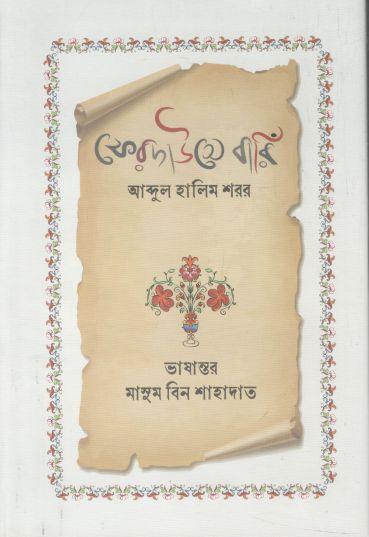 ফেরদাউসে বারিঁ
আব্দুল হালিম শরর
ভাষান্তর
মাসুম বিন শাহাদাত